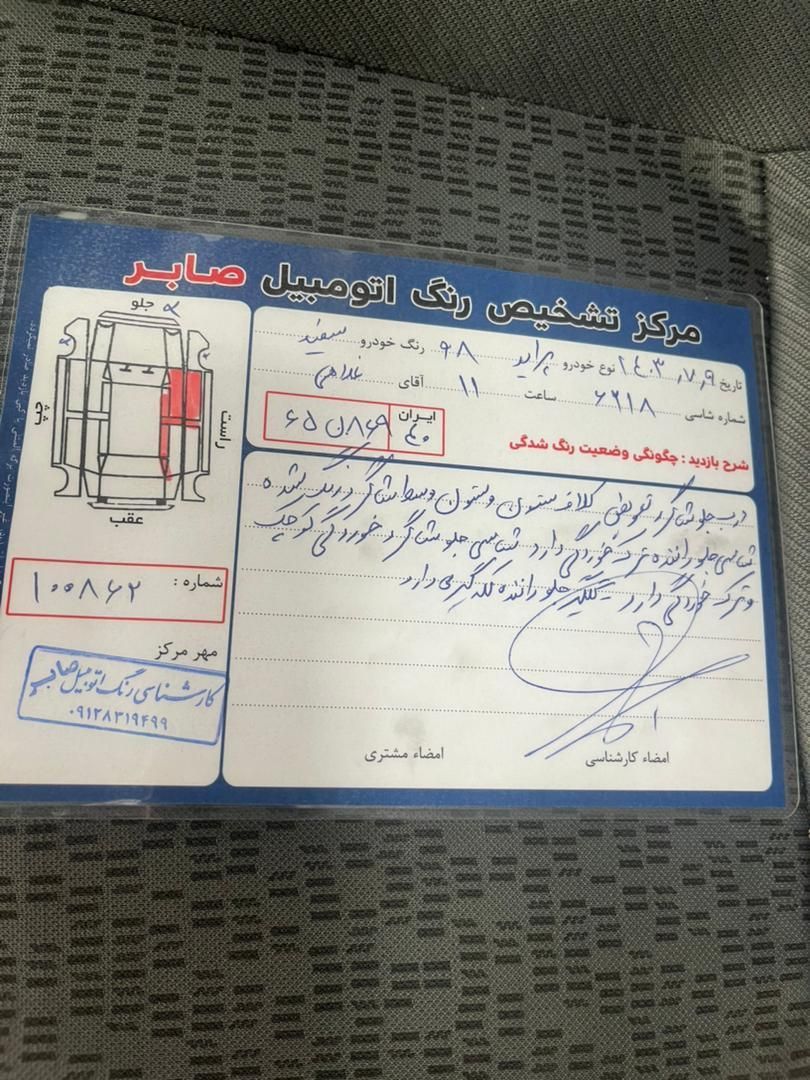 مرکز تشخیص رنگ اتومبیل صابر
تاریخ ۱۴۰۳٫۷٫۹ نوع خودرو پراید ۹۸ رنگ خودرو سفید
شماره شاسی ۶۹۱۸ ساعت ۱۱ آقای غلامی
ایران ۴۰
۶۵ ل ۸۶۹
شرح بازدید : چگونگی وضعیت رنگ شدگی
درب جلو شاگرد تعویض کلاف ستون و ستون وسط شاگرد رنگ شده
شاسی جلو راننده ترک خوردگی دارد شاسی جلو شاگرد خوردگی کوچک
و ترک خوردگی دارد گلگیر جلو راننده لکه گیری دارد
امضاء کارشناسی
امضاء مشتری
جلو
راست
چپ
عقب
شماره : ۱۰۰۸۶۲
مهر مرکز
کارشناسی رنگ اتومبیل صابر
۰۹۱۲۸۳۱۹۴۹۹